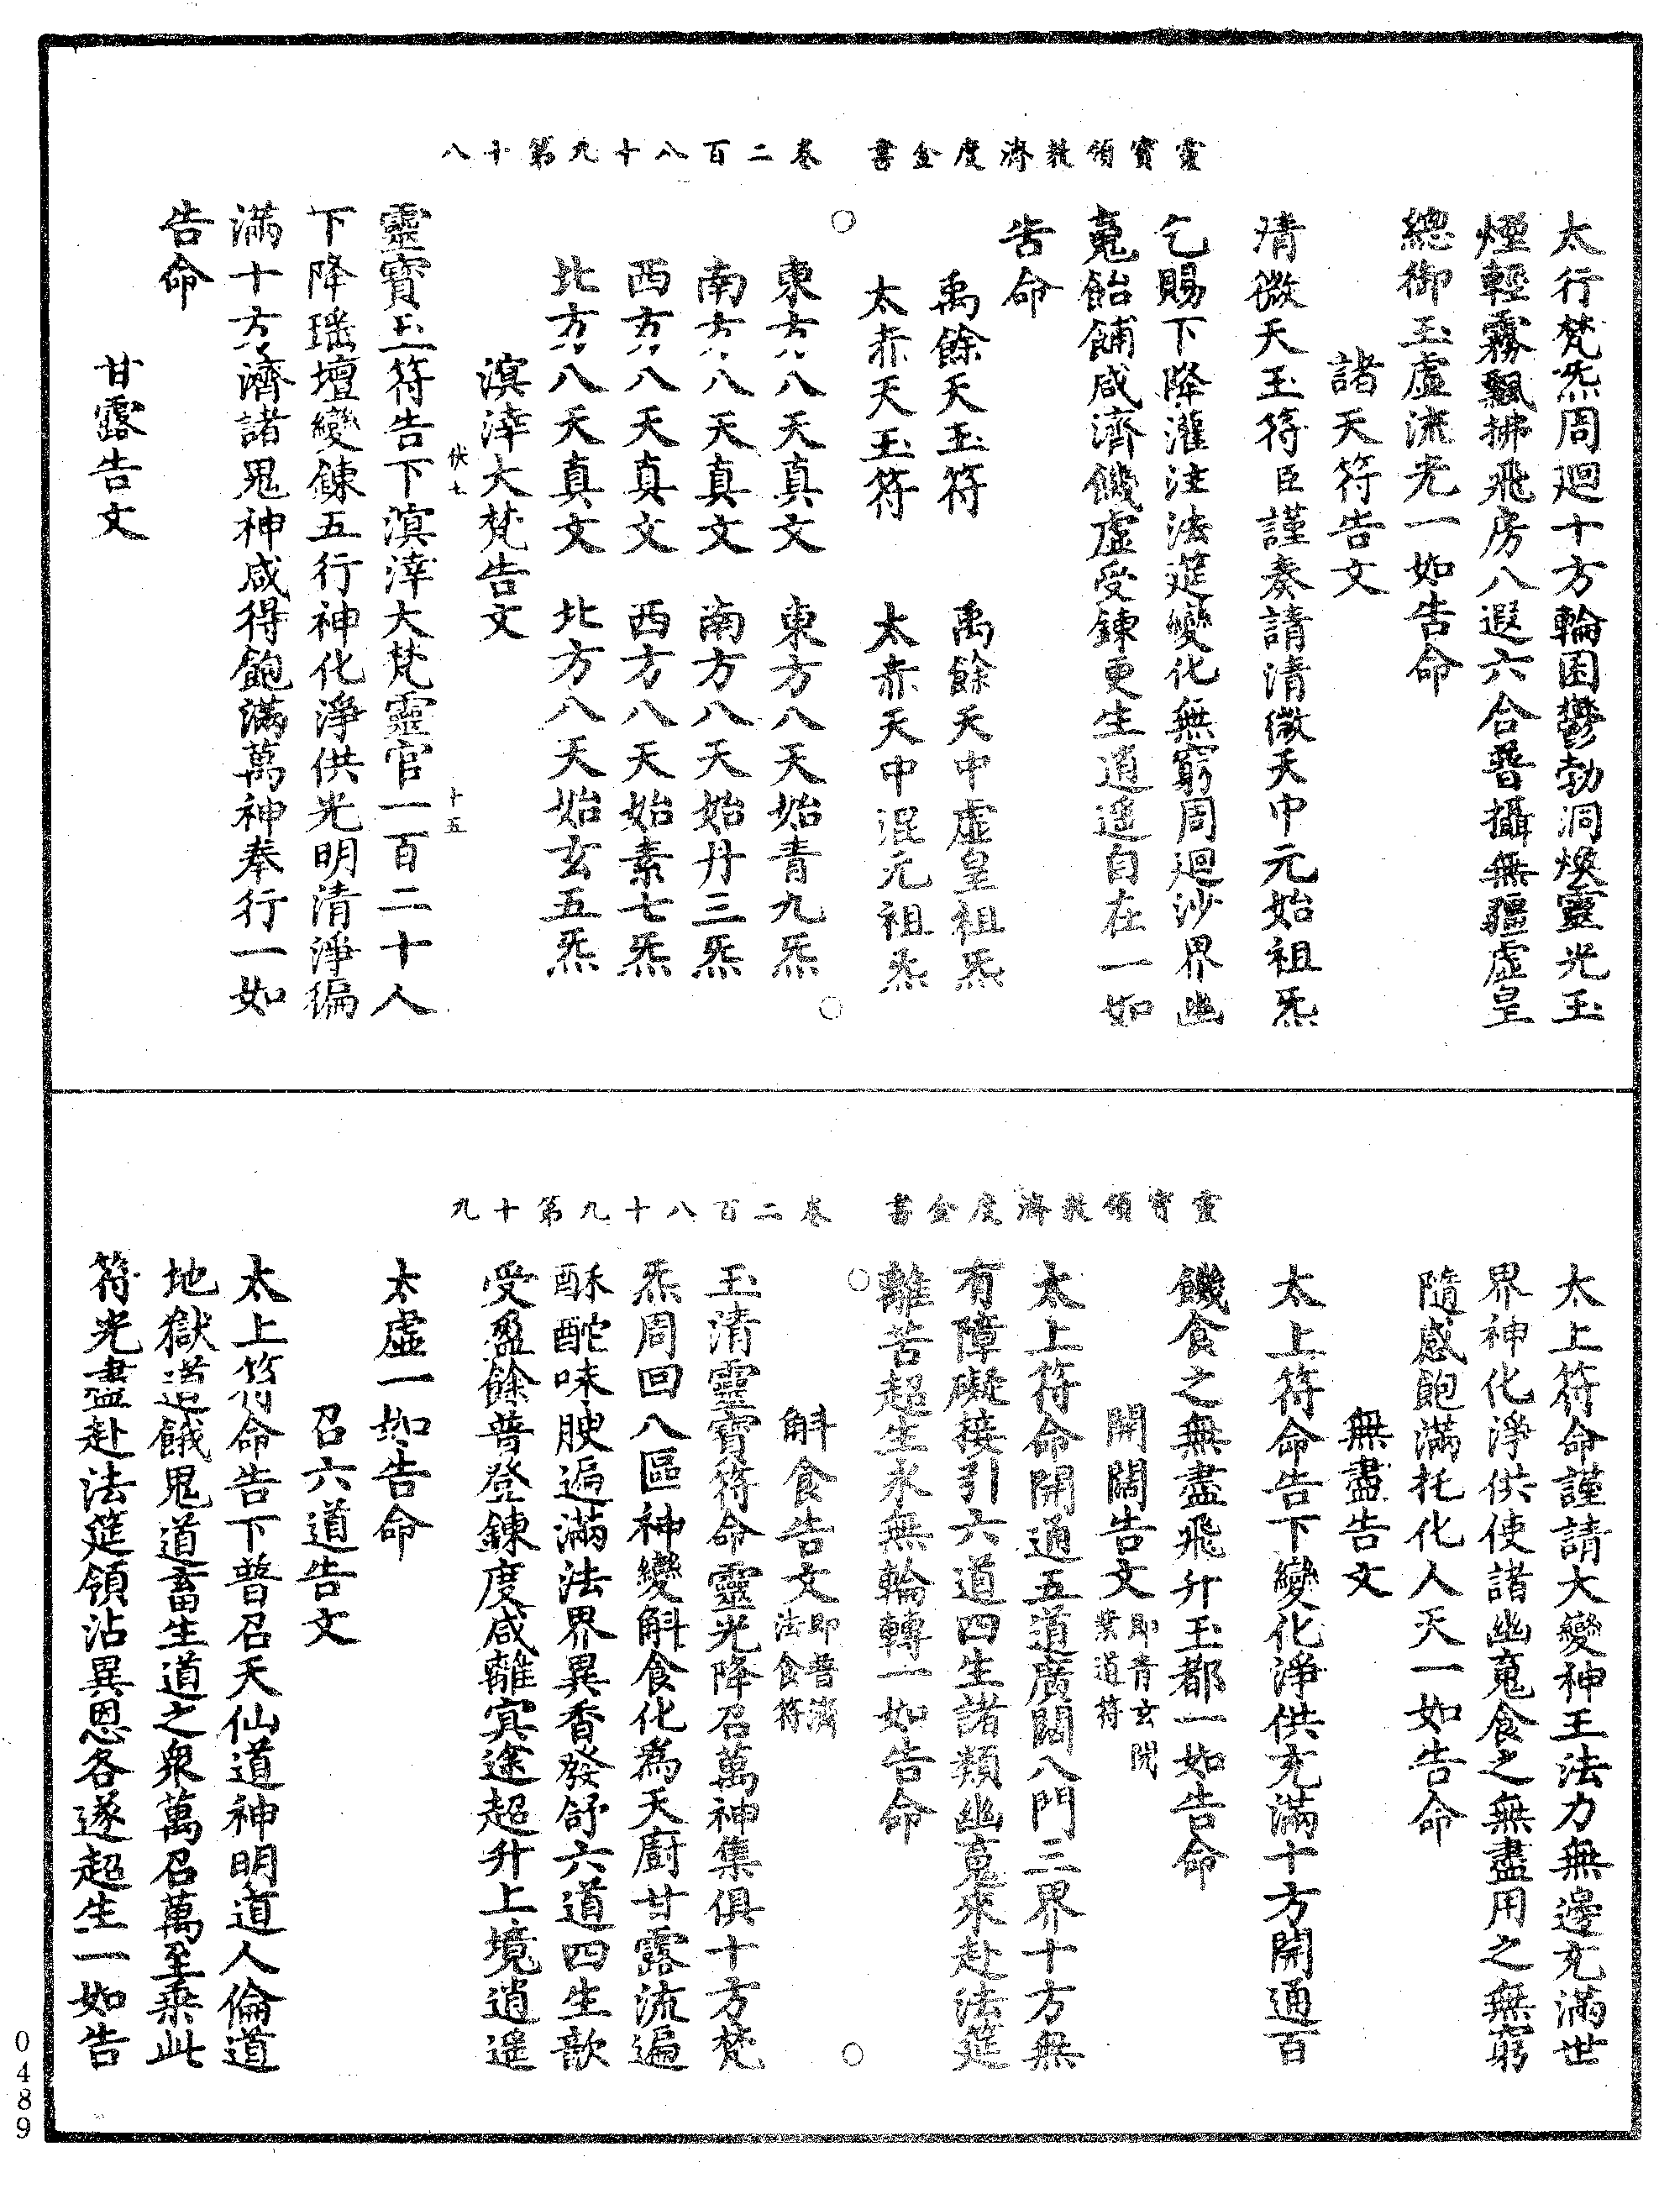 靈寶領教濟度金書　卷二百八十九第十八
太行梵炁周迴十方輪囷鬱勃洞煥靈光玉
煙輕霧飄拂飛房八遐六合普攝無疆虛皇
總御玉虛流光一如告命
諸天符告文
清微天玉符臣謹奏請清微天中元始祖炁
乞賜下降灌注法筵變化無窮周迴沙界幽
魂飴餔咸濟饑虛受鍊更生逍遥自在一如
告命
禹餘天玉符　禹餘天中虛皇祖炁
太赤天玉符　太赤天中混元祖炁
東方八天真文　東方八天始青九炁
南方八天真文　南方八天始丹三炁
西方八天真文　西方八天始素七炁
北方八天真文　北方八天始玄五炁
溟涬大梵告文
伏七　十五
靈寶玉符告下溟涬大梵靈官一百二十人
下降瑶壇變鍊五行神化淨供光明清淨徧
滿十方濟諸鬼神咸得飽滿萬神奉行一如
告命
甘露告文
靈寶領教濟度金書　卷二百八十九第十九
太上符命謹請大變神王法力無邊充滿世
界神化淨供使諸幽魂食之無盡用之無窮
隨感飽滿托化人天一如告命
無盡告文
太上符命告下變化淨供充滿十方開通百
饑食之無盡飛升玉都一如告命
開闢告文即青玄開業道符
太上符命開通五道廣闢八門三界十方無
有障礙接引六道四生諸類幽魂來赴法筵
離苦超生永無輪轉一如告命
斛食告文即普濟法食符
玉清靈寶符命靈光降召萬神集俱十方梵
炁周回八區神變斛食化為天廚甘露流遍
酥酡味腴遍滿法界異香發舒六道四生歆
受盈餘普登鍊度咸離冥途超升上境逍遥
太虛一如告命
召六道告文
太上符命告下普召天仙道神明道人倫道
地獄道餓鬼道畜生道之衆萬召萬至乘此
符光盡赴法筵領沾異恩各遂超生一如告
0489